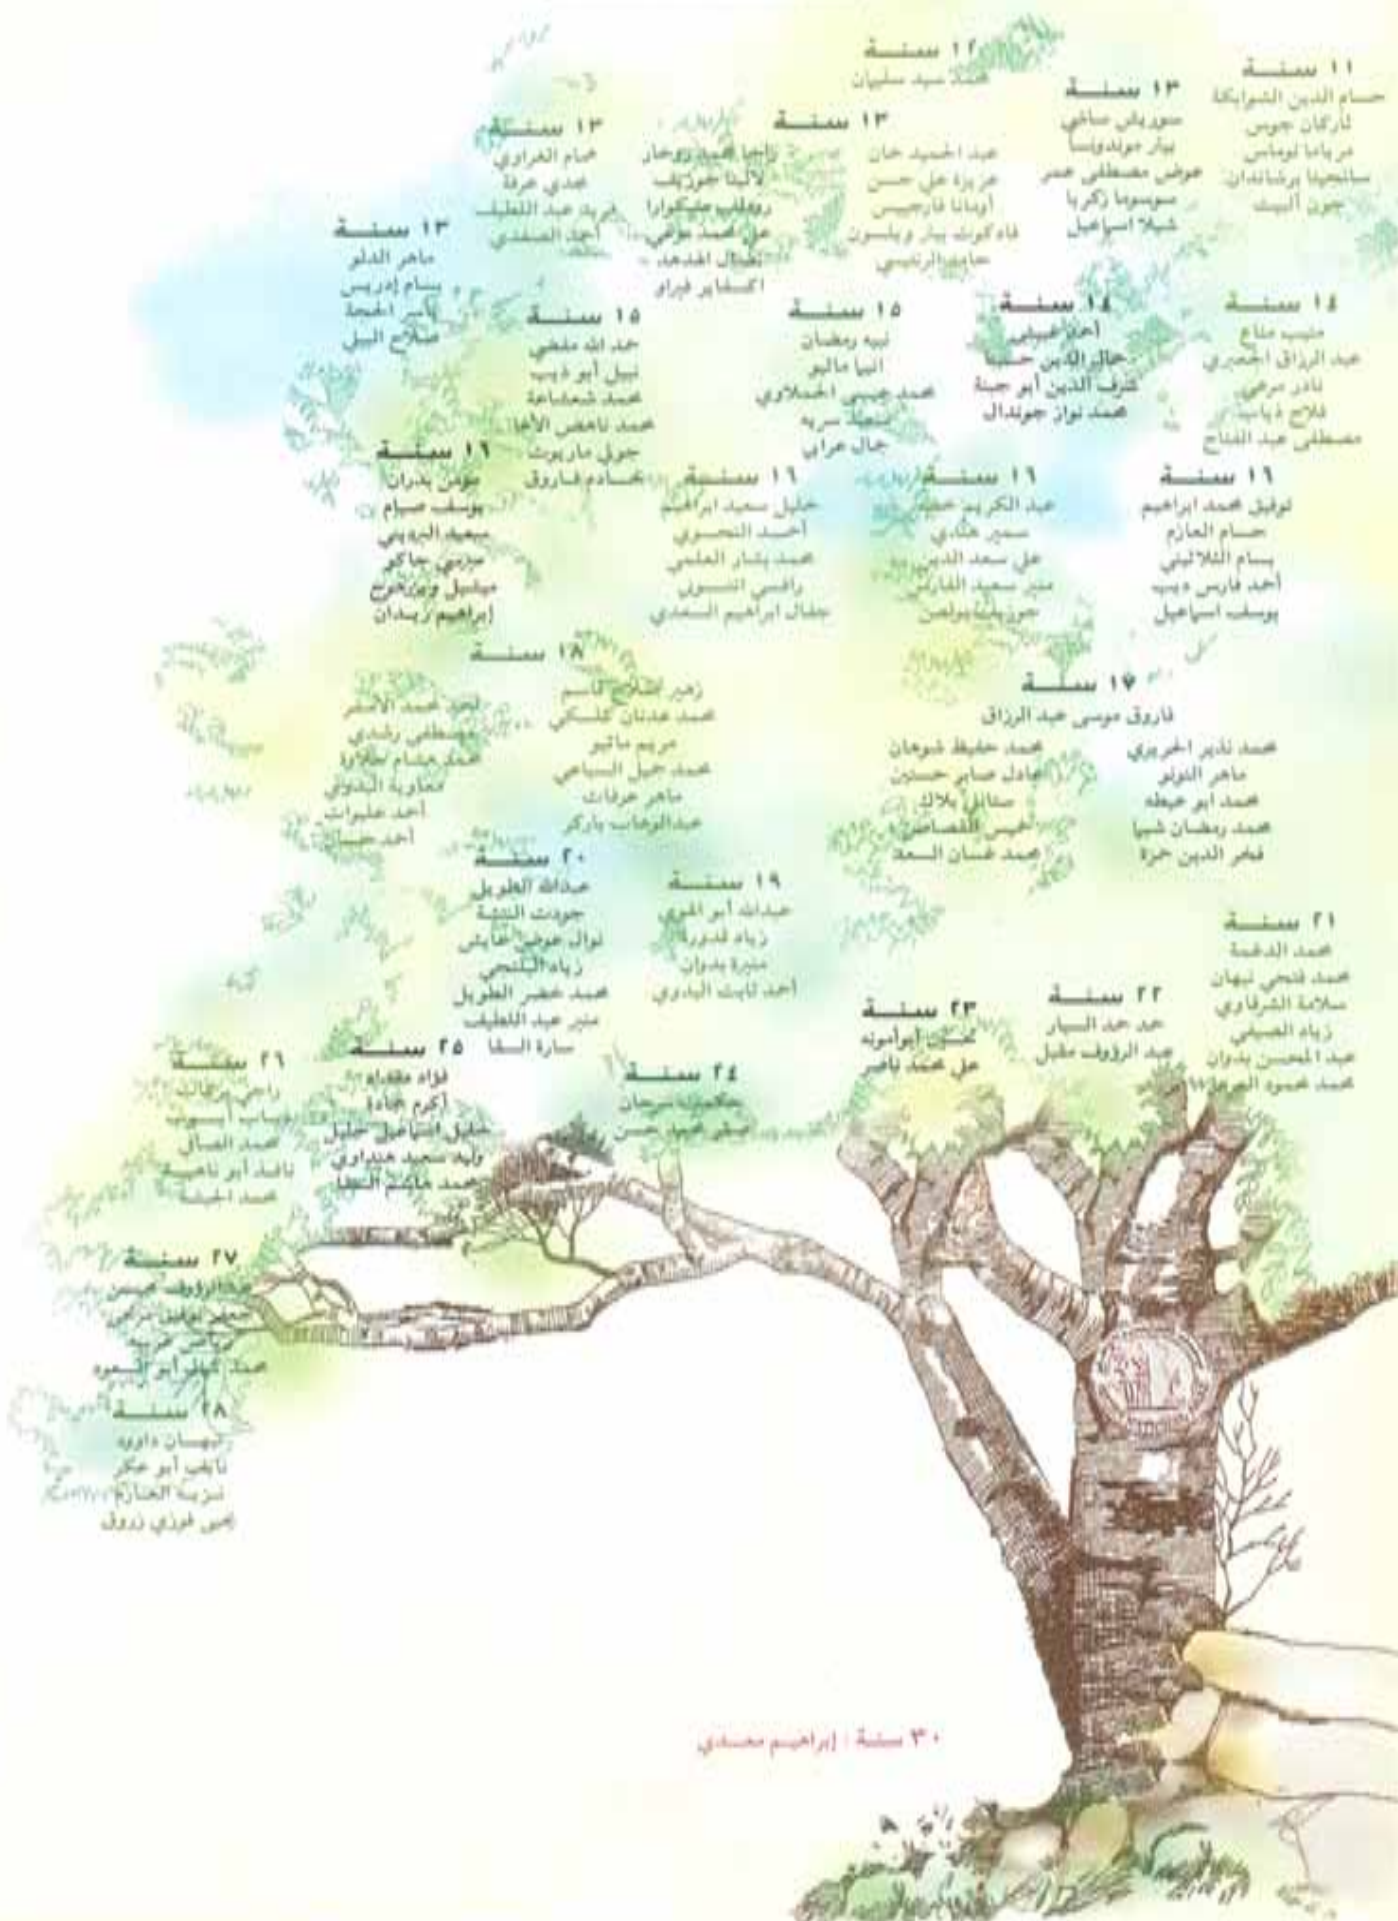 ١١ سنة
حسام الدين الشوابكة
لاركان جوس
مرياما توماس
سانجيتا برشاندان
جون ألبيت
١٢ سنة
محمد سيد سليمان
١٣ سنة
سوريش ساخي
بيار موندونسا
عوض مصطفى عمر
سوسوما زكريا
شيلا اسماعيل
١٣ سنة
عبد الحميد خان
عزيزة علي حسن
أومانا فارجيس
فادكوت بيار ويلسون
حامد الرنتيسي
لالينا جوزيف
علي محمد مرعي
نضال الهدهد
اكسفاير فيراو
١٣ سنة
همام الغراوي
مجدي عرفة
فريد عبد اللطيف
أحمد الصفدي
١٣ سنة
ماهر الدلو
بسام إدريس
ياسر الحجة
صلاح البيل
١٤ سنة
منيب مناع
عبد الرزاق الحصيري
نادر مرعي
فلاح ذياب
مصطفى عبد الفتاح
١٤ سنة
أحمد عبيني
شرف الدين أبو جبنة
محمد نواز جوندال
١٥ سنة
نبيه رمضان
انيا ماليو
محمد عيسى الحملاوي
سعيد سريه
جمال عرابي
١٥ سنة
حمد الله مفضي
نبيل أبو ذيب
محمد شعشاعة
محمد ناهض الأغا
جولي ماريوت
خادم فاروق
١٦ سنة
توفيق محمد ابراهيم
حسام العازم
بسام الثلاثيني
أحمد فارس ديب
يوسف اسماعيل
١٦ سنة
عبد الكريم
سمير هندي
علي سعد الدين
منير سعيد الفارس
جوزيف بولص
١٦ سنة
خليل سعيد ابراهيم
أحمد النحوي
محمد بشار العلمي
رافي انتوني
جمال ابراهيم السعدي
١٦ سنة
مؤمن بدران
يوسف صيام
سعيد البرديني
ميرسي جاكو
ميشيل
إبراهيم زيدان
١٧ سنة
فاروق موسى عبد الرزاق
محمد نذير الحريري
ماهر اللولو
محمد ابو عيطه
محمد رمضان شيبا
فخر الدين حمزة
محمد حفيظ شوهان
عادل صابر حسنين
ستانلي بلاك
خميس القصاص
محمد غسان السعد
١٨ سنة
زهير صلاح قاسم
محمد عدنان كلسكي
مريم ماثيو
محمد جميل السباعي
ماهر عرفات
عبدالوهاب باركر
محمد الأسمر
مصطفى رشدي
محمد هشام حلاوة
معاوية البدوي
أحمد عليوات
أحمد
١٩ سنة
عبدالله أبو الهوى
زياد قدورة
منيرة بدوان
أحمد ثابت البدوي
٢٠ سنة
عبدالله الطويل
جودت النتشة
نوال عوض عايش
زياد البلتجي
محمد خضر الطويل
منير عبد اللطيف
سارة السقا
٢١ سنة
محمد الدغمة
محمد فتحي نبهان
سلامة الشرفاوي
زياد الصيفي
عبد المحسن بدوان
محمد محمود
٢٢ سنة
حمد حمد السيار
عبد الرؤوف مقبل
٢٣ سنة
تحسين أبوأمونه
علي محمد ناصر
٢٤ سنة
سرحان
حسن
٢٥ سنة
فؤاد مقداد
أكرم حمادة
خليل اسماعيل خليل
وليد سعيد هنداوي
محمد هاشم السقا
٢٦ سنة
راجي بركات
محمد العسال
نافذ أبو ناهية
محمد الحيلة
٢٧ سنة
عبد الرؤوف محيسن
أبو السعود
٢٨ سنة
نبهان داوود
نايف أبو عكر
نزيه العنازة
يحيى فوزي زروق
٣٠ سنة : إبراهيم مجدي